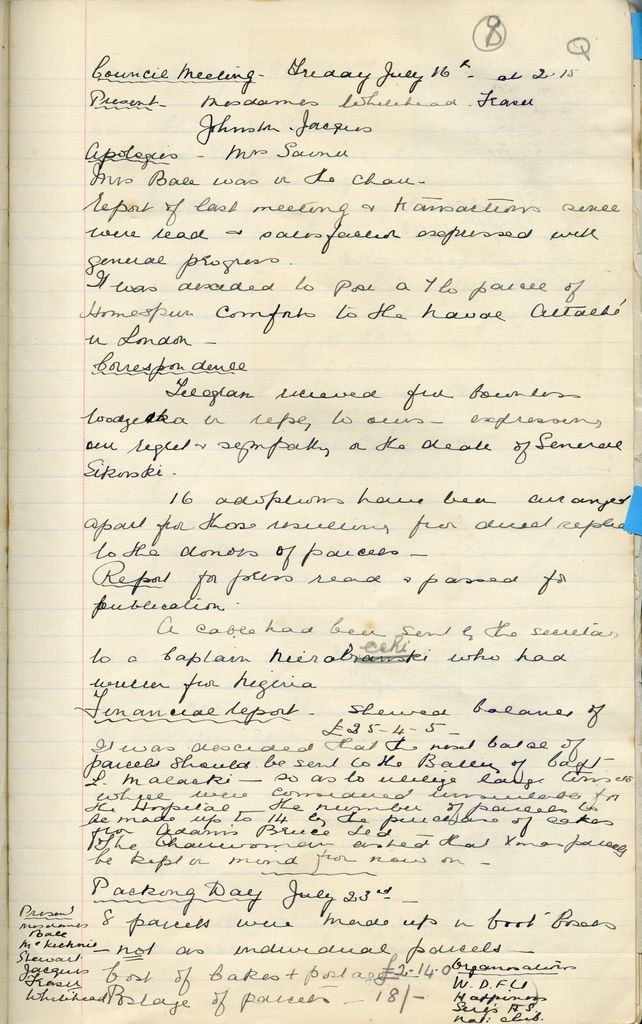 8
Council Meeting - Friday July 16th - at 2.15
Present - Mesdames Whitehead. Fraser
Johnston. Jacques
Apologies - Mrs
Mrs Ball was in the chair -
Report of last meeting & transactions since
were read & satisfaction expressed with
general progress.
It was decided to post a 7 lb parcel of
Homespun Comforts to the Naval Attaché
in London -
Correspondence
Telegram received from Countess
Wodzicka in reply to ours - expressing
our regret & sympathy on the death of General
Sikorski.
16 adoptions have been arranged
apart from those resulting from direct replies
to the donors of parcels -
Report for press read & passed for
publication.
A cable had been sent by the secretary
to a Captain who had
written from Nigeria
Financial report - shewed balance of
£35-4-5-
It was decided that the next batch of
parcels should be sent to the Battery of Capt
L. Malacki - so as to utilize large tins
which were considered unsuitable for
the Hospital - the number of parcels to
be made up to 14 by the purchase of cakes
from Adams Bruce Ltd.
The Chairwoman asked that Xmas parcels
be kept in mind from now on -
Packing Day July 23rd -
8 parcels were made up in boot boxes
- not as individual parcels -
Cost of Cakes + postage £2-14-0
Postage of parcels - 18/-
Present
Mesdames
Ball
McKechnie
Stewart
Jacques
Fraser
Whitehead
Organisations
W.D.F.U
Happiness